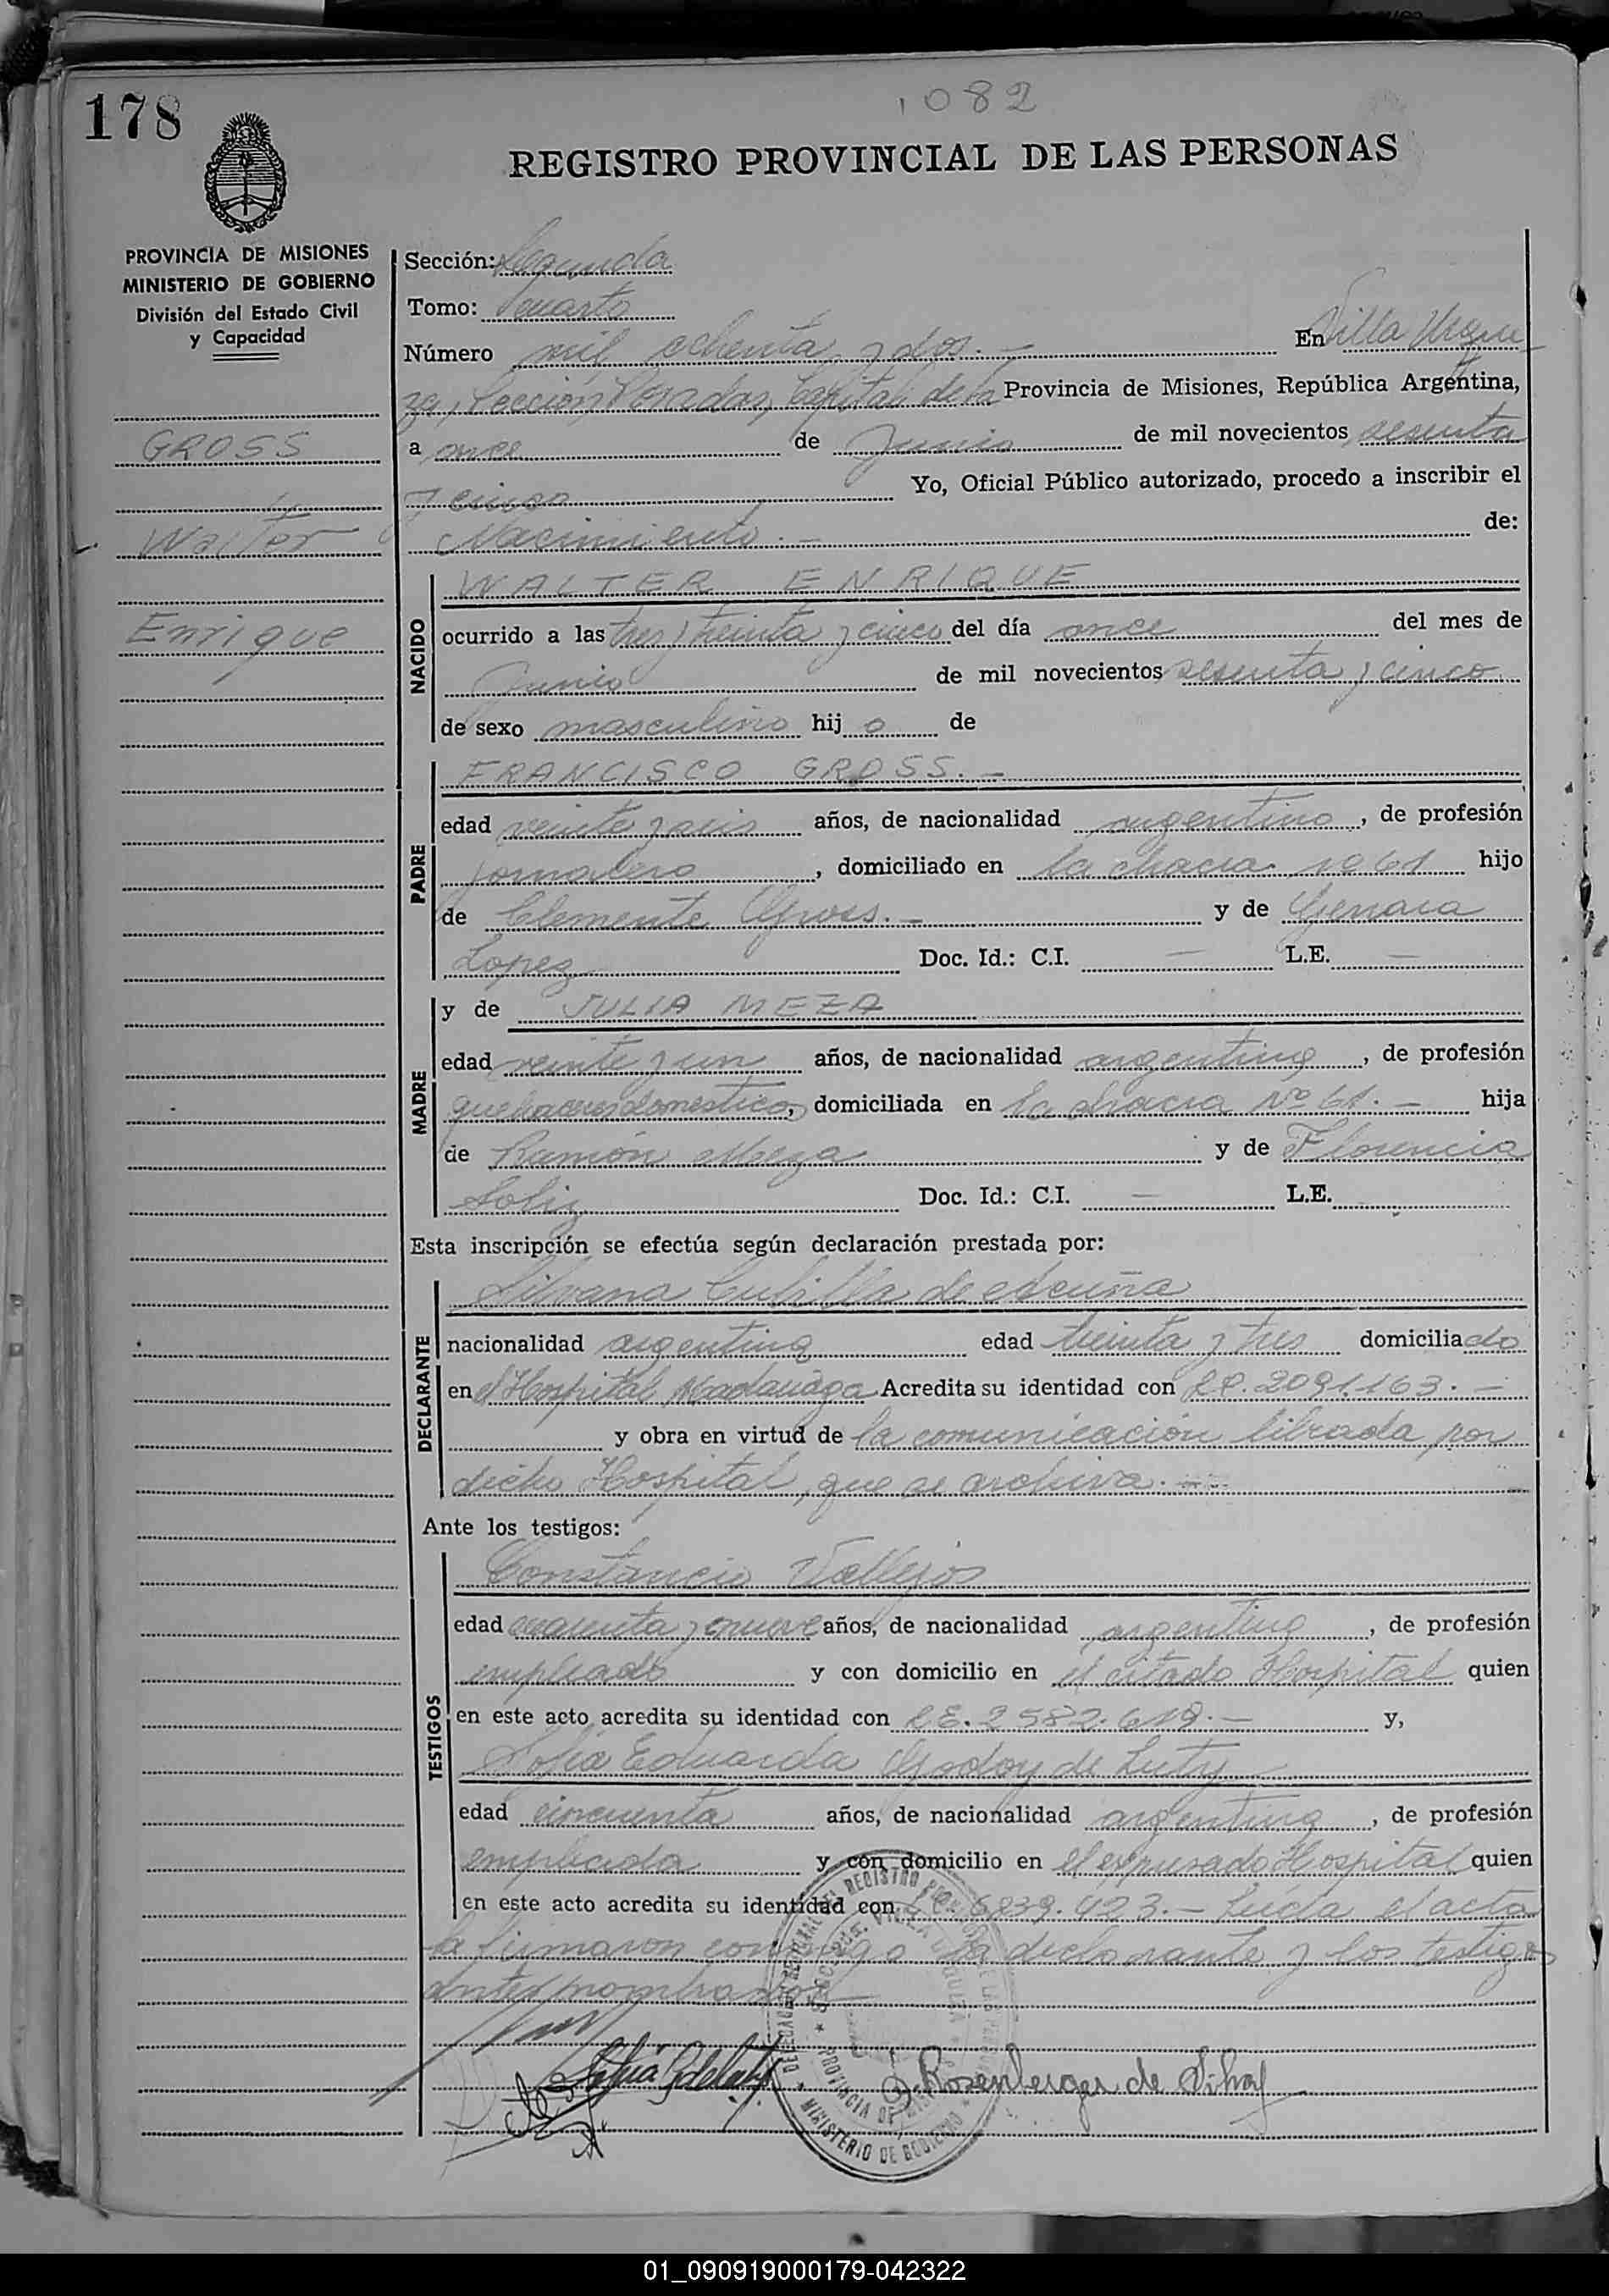 178
1082
REGISTRO PROVINCIAL DE LAS PERSONAS
PROVINCIA DE MISIONES
MINISTERIO DE GOBIERNO
División del Estado Civil
y Capacidad
GROSS
Walter
Enrique
Sección: Segunda
Tomo: cuarto
Número mil ochenta y dos.- En Villa Urqui
za, Sección Posadas, Capital de la Provincia de Misiones, República Argentina,
a once de Junio de mil novecientos sesenta
y cinco Yo, Oficial Público autorizado, procedo a inscribir el
Nacimiento.- de:
NACIDO
WALTER ENRIQUE
ocurrido a las tres y treinta y cinco del día once del mes de
Junio de mil novecientos sesenta y cinco
de sexo masculino hij o de
PADRE
FRANCISCO GROSS.-
edad veinte y seis años, de nacionalidad argentino, de profesión
jornalero, domiciliado en la chacra nº 61 hijo
de Clemente Gross.- y de Genara
Lopez Doc. Id.: C.I. — L.E. —
MADRE
y de JULIA MEZA
edad veinte y un años, de nacionalidad argentina, de profesión
quehaceres domestico, domiciliada en la chacra Nº 61.- hija
de Ramón Meza y de Florencia
Soliz Doc. Id.: C.I. — L.E.
Esta inscripción se efectúa según declaración prestada por:
DECLARANTE
Silvana Cubilla de Acuña
nacionalidad argentina edad treinta y tres domiciliado
en el Hospital Madariaga Acredita su identidad con 2091.163.-
y obra en virtud de la comunicación librada por
dicho Hospital, que se archiva.-
Ante los testigos:
TESTIGOS
Constancio Vallejos
edad cuarenta y nueve años, de nacionalidad argentina, de profesión
empleado y con domicilio en el citado Hospital quien
en este acto acredita su identidad con L.E. 2582.618.- y,
Sofia Eduarda Godoy de Luty
edad cincuenta años, de nacionalidad argentina, de profesión
empleada y con domicilio en el expresado Hospital quien
en este acto acredita su identidad con 6839.423.- Leída el acta
la firmaron conmigo la declarante y los testigos
antes nombrados
Rosenberger de
MINISTERIO DE GOBIERNO
01_090919000179-042322